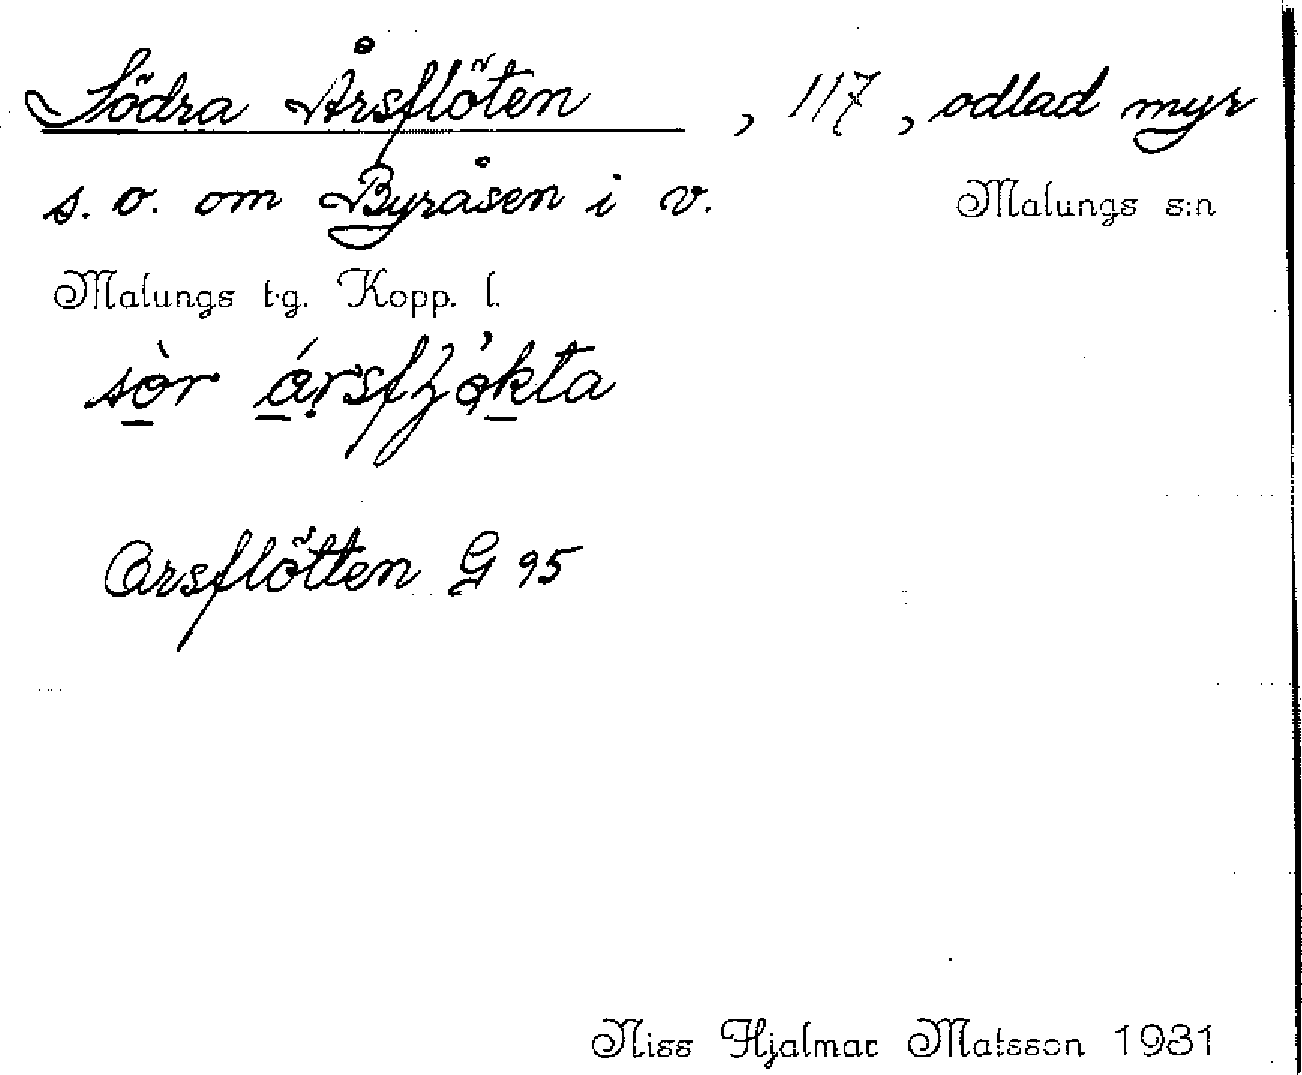 Södra Årsflöten, 117, odlad myr
s. o. om Byråsen i v. Malungs s:n
Malungs t.g. Kopp. l.
sòr
Orsflötten G 95
Niss Hjalmar Matsson 1931